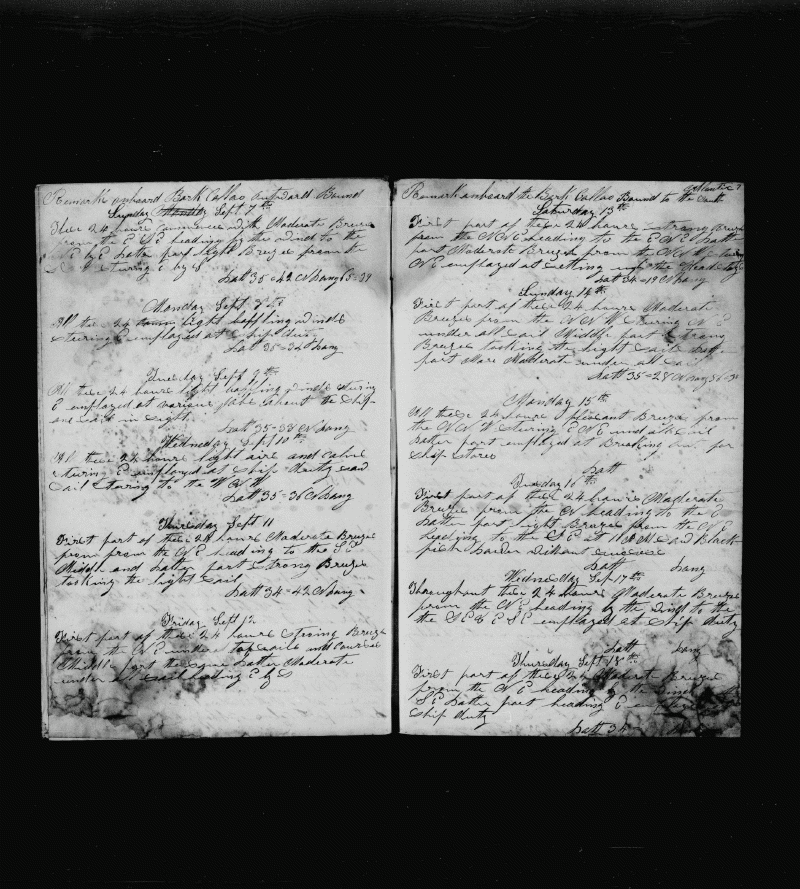 Remarks onboard Bark Callao Outward Bound
Sunday Sept 7th
These 24 hours commence with Moderate Breeze
from the E S E heading by the Wind to the
N E by E Latter part light Breeze from the
steering E by S
Latt 35-42 N Long 65-39
Monday Sept 8th
All these 24 hours light baffling winds
steering E employed at Ship duty
Latt 35-34 Long
Tuesday Sept 9th
All these 24 hours light winds steering
E employed at various jobs about the Ship
one sail in sight
Latt 35-38 N Long
Wednesday Sept 10th
All these 24 hours light airs and calm
steering E employed at Ship duty saw
sail steering to the W N W
Latt 35-36 N Long
Thursday Sept 11
First part of these 24 hours Moderate Breeze
from from the N E heading to the S E
Middle and Latter part Strong Breeze
taking the light sail
Latt 34-42 N Long
Friday Sept 12
First part of these 24 hours Strong Breeze
from the N E under topsails and Courses
Middle part the same Latter Moderate
under all sail heading E by S
Remarks onboard the Bark Callao Bound to the South
Atlantic 7
Saturday 13th
First part of these 24 hours strong Breeze
from the N N E heading to the E N E Latter
part Moderate Breeze from the N N W
N E employed at setting up the Head
Latt 34-19 N Long
Sunday 14th
First part of these 24 hours Moderate
Breeze from the N N W steering N E
under all sail Middle part strong
Breeze taking the light sails Latter
part More Moderate under all sail
Latt 35-28 N Long 56-30
Monday 15th
All these 24 hours pleasant Breeze from
the N N W steering E N E und all sail
Latter part employed at Breaking out for
Ship stores
Latt
Tuesday 16th
First part of these 24 hours Moderate
Breeze from the N heading to the E
Latter part light Breeze from the N E
heading to the S E at 11 A M saw Black
fish lower without success
Latt Long
Wednesday Sep 17th
Throughout these 24 hours Moderate Breeze
from the N E heading by the Wind to the
the S E & E S E employed at Ship duty
Latt Long
Thursday Sept 18th
First part of these 24 Moderate Breeze
from the N E heading by the Wind
S E Latter part heading E employed
Ship duty
Latt 34